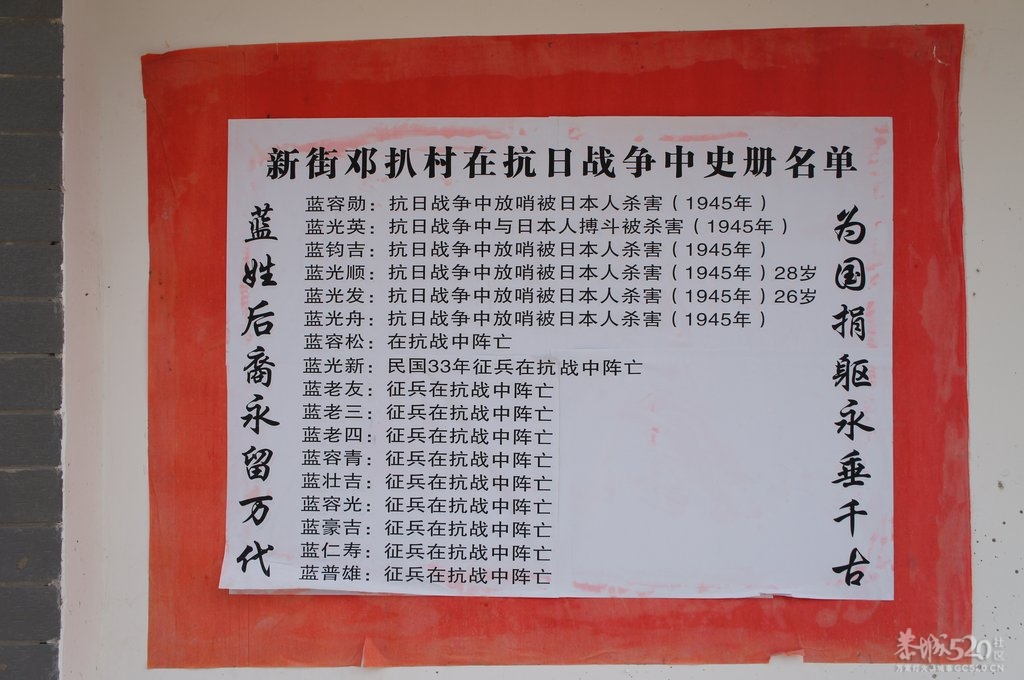 新街邓扒村在抗日战争中史册名单
为国捐躯永垂千古
蓝容勋：抗日战争中放哨被日本人杀害（1945年）
蓝光英：抗日战争中与日本人搏斗被杀害（1945年）
蓝钧吉：抗日战争中放哨被日本人杀害（1945年）
蓝光顺：抗日战争中放哨被日本人杀害（1945年）28岁
蓝光发：抗日战争中放哨被日本人杀害（1945年）26岁
蓝光舟：抗日战争中放哨被日本人杀害（1945年）
蓝容松：在抗战中阵亡
蓝光新：民国33年征兵在抗战中阵亡
蓝老友：征兵在抗战中阵亡
蓝老三：征兵在抗战中阵亡
蓝老四：征兵在抗战中阵亡
蓝容青：征兵在抗战中阵亡
蓝壮吉：征兵在抗战中阵亡
蓝容光：征兵在抗战中阵亡
蓝豪吉：征兵在抗战中阵亡
蓝仁寿：征兵在抗战中阵亡
蓝普雄：征兵在抗战中阵亡
蓝姓后裔永留万代
恭城520社区
GC520.CN